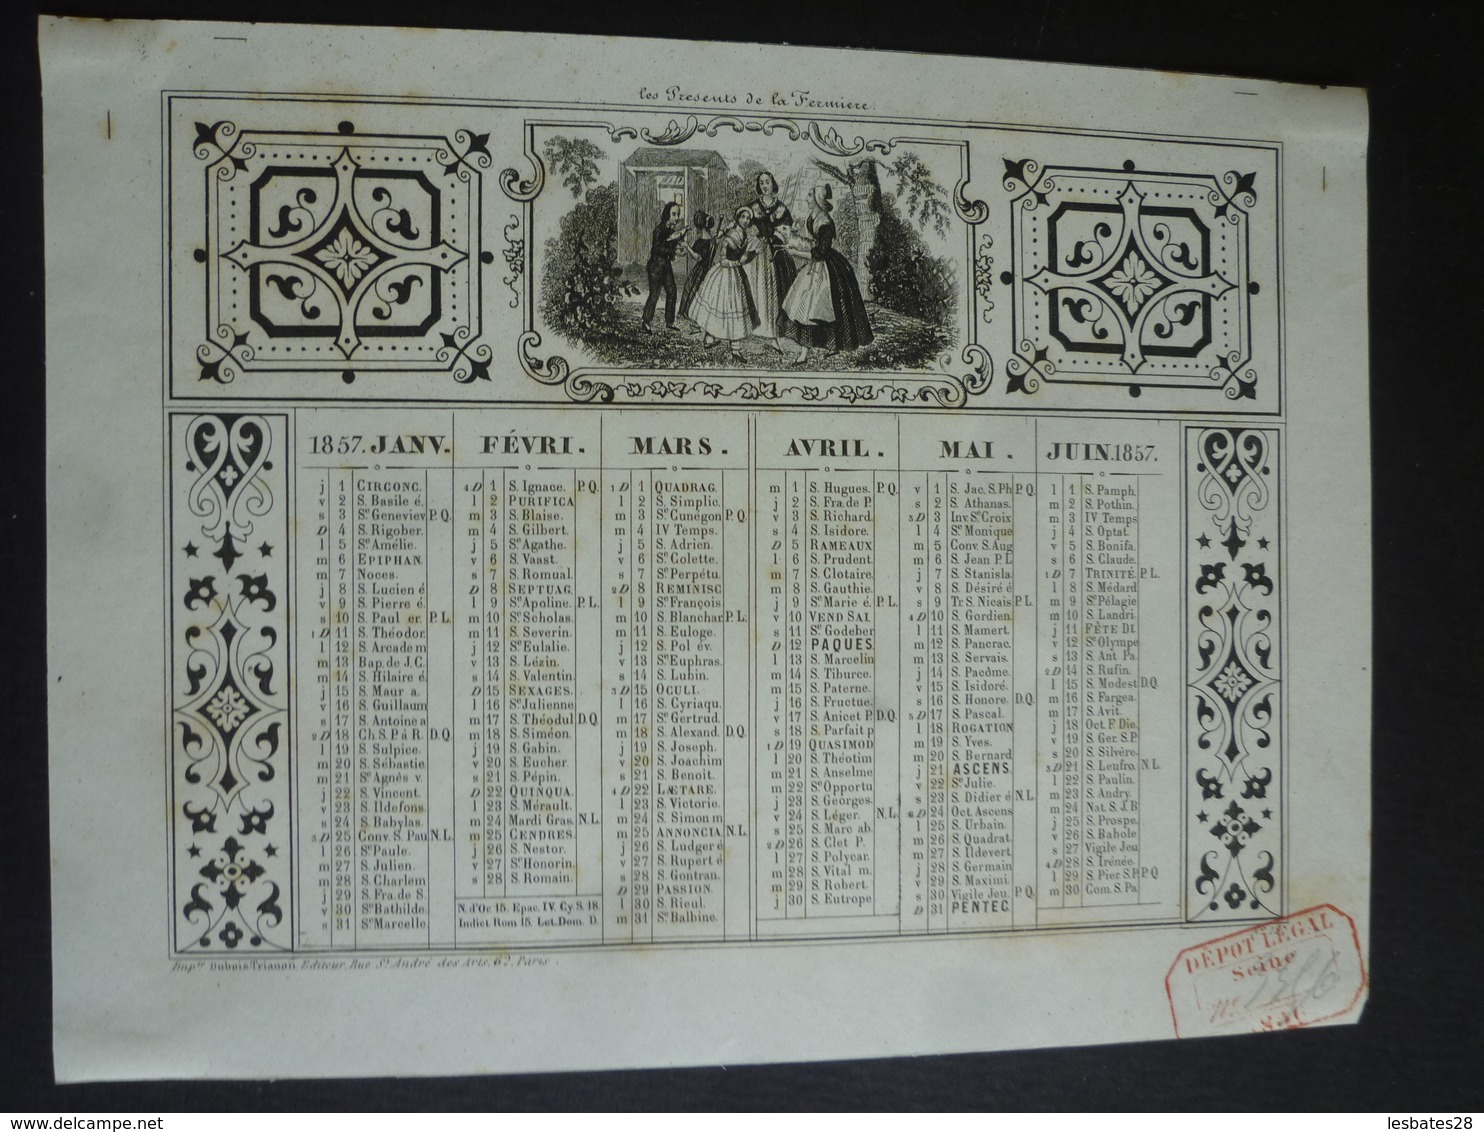 les Presents de la Fermiere.
1857. JANV.
j 1 CIRCONC.
v 2 S. Basile é.
s 3 Ste Geneviev P.Q.
D 4 S. Rigober.
l 5 Ste Amélie.
m 6 EPIPHAN.
m 7 Noces.
j 8 S. Lucien é
v 9 S. Pierre é.
s 10 S. Paul er. P.L.
1D 11 S. Théodor.
l 12 S. Arcade m
m 13 Bap. de J.C.
m 14 S. Hilaire é.
j 15 S. Maur a.
v 16 S. Guillaum
s 17 S. Antoine a
2D 18 Ch S. P. à R. D.Q.
l 19 S. Sulpice.
m 20 S. Sébastie.
m 21 Ste Agnès v.
j 22 S. Vincent.
v 23 S. Ildefons.
s 24 S. Babylas.
3D 25 Conv. S. Pau N.L.
l 26 Ste Paule.
m 27 S. Julien.
m 28 S. Charlem
j 29 S. Fra. de S.
v 30 Ste Bathilde.
s 31 Ste Marcelle.
FÉVRI.
4D 1 S. Ignace. P.Q.
l 2 PURIFICA
m 3 S. Blaise.
m 4 S. Gilbert.
j 5 Ste Agathe.
v 6 S. Vaast.
s 7 S. Romual.
D 8 SEPTUAG.
l 9 Ste Apoline. P.L.
m 10 Ste Scholas.
m 11 S. Severin.
j 12 Ste Eulalie.
v 13 S. Lézin.
s 14 S. Valentin.
D 15 SEXAGES.
l 16 Ste Julienne.
m 17 S. Théodul D.Q.
m 18 S. Siméon.
j 19 S. Gabin.
v 20 S. Eucher.
s 21 S. Pépin.
D 22 QUINQUA.
l 23 S. Mérault.
m 24 Mardi Gras. N.L.
m 25 CENDRES.
j 26 S. Nestor.
v 27 Ste Honorin.
s 28 S. Romain.
N. d'Or 15. Epac. IV. Cy S. 18.
Indict Rom 15. Let. Dom. D.
MARS.
1D 1 QUADRAG.
l 2 S. Simplic.
m 3 Ste Cunégon P.Q.
m 4 IV Temps.
j 5 S. Adrien.
v 6 Ste Colette.
s 7 Ste Perpétu.
2D 8 REMINISC
l 9 Ste François
m 10 S. Blanchar P.L.
m 11 S. Euloge.
j 12 S. Pol év.
v 13 Ste Euphras.
s 14 S. Lubin.
3D 15 OCULI.
l 16 S. Cyriaqu.
m 17 Ste Gertrud.
m 18 S. Alexand. D.Q.
j 19 S. Joseph.
v 20 S. Joachim
s 21 S. Benoit.
4D 22 LÆTARE.
l 23 S. Victorie.
m 24 S. Simon m
m 25 ANNONCIA N.L.
j 26 S. Ludger é
v 27 S. Rupert é
s 28 S. Gontran.
D 29 PASSION.
l 30 S. Rieul.
m 31 Ste Balbine.
AVRIL.
m 1 S. Hugues. P.Q.
j 2 S. Fra. de P.
v 3 S. Richard.
s 4 S. Isidore.
D 5 RAMEAUX
l 6 S. Prudent.
m 7 S. Clotaire.
m 8 S. Gauthie.
j 9 Ste Marie é. P.L.
v 10 VEND SAI
s 11 Se Godeber
D 12 PAQUES.
l 13 S. Marcelin
m 14 S. Tiburce.
m 15 S. Paterne.
j 16 S. Fructue.
v 17 S. Anicet P. D.Q.
s 18 S. Parfait p
1D 19 QUASIMOD
l 20 S. Théotim
m 21 S. Anselme
m 22 Se Opportu
j 23 S. Georges.
v 24 S. Léger. N.L.
s 25 S. Marc ab.
2D 26 S. Clet P.
l 27 S. Polycar.
m 28 S. Vital m.
m 29 S. Robert.
j 30 S. Eutrope
MAI.
v 1 S. Jac. S. Ph P.Q.
s 2 S. Athanas.
3D 3 Inv. Ste Croix
l 4 Ste Monique
m 5 Conv. S. Aug
m 6 S. Jean P. L
j 7 S. Stanisla.
v 8 S. Désiré é
s 9 Tr. S. Nicais P.L.
4D 10 S. Gordien.
l 11 S. Mamert.
m 12 S. Pancrac.
m 13 S. Servais.
j 14 S. Pacôme.
v 15 S. Isidoré.
s 16 S. Honore. D.Q.
5D 17 S. Pascal.
l 18 ROGATION
m 19 S. Yves.
m 20 S. Bernard
j 21 ASCENS.
v 22 Ste Julie.
s 23 S. Didier é N.L.
6D 24 Oct. Ascens
l 25 S. Urbain.
m 26 S. Quadrat.
m 27 S. Ildevert.
j 28 S. Germain
v 29 S. Maximi.
s 30 Vigile Jeu. P.Q.
D 31 PENTEC.
JUIN. 1857.
l 1 S. Pamph.
m 2 S. Pothin.
m 3 IV Temps
j 4 S. Optat.
v 5 S. Bonifa.
s 6 S. Claude.
1D 7 TRINITÉ. P.L.
l 8 S. Médard
m 9 Ste Pélagie
m 10 S. Landri.
j 11 FÊTE DI
v 12 Ste Olympe
s 13 S. Ant Pa.
2D 14 S. Rufin.
l 15 S. Modest D.Q
m 16 S. Fargea.
m 17 S. Avit.
j 18 Oct F. Die.
v 19 S. Ger. S. P.
s 20 S. Silvère.
3D 21 S. Leufro. N.L.
l 22 S. Paulin.
m 23 S. Andry.
m 24 Nat. S. J. B
j 25 S. Prospe.
v 26 S. Babole
s 27 Vigile Jeu
4D 28 S. Irénée.
l 29 S. Pier S. P. P.Q
m 30 Com. S. Pa
Imp.rie Dubois Trianon. Editeur. Rue St André des Arts. 62. Paris.
DÉPOT LÉGAL
Seine
No
lesbates28